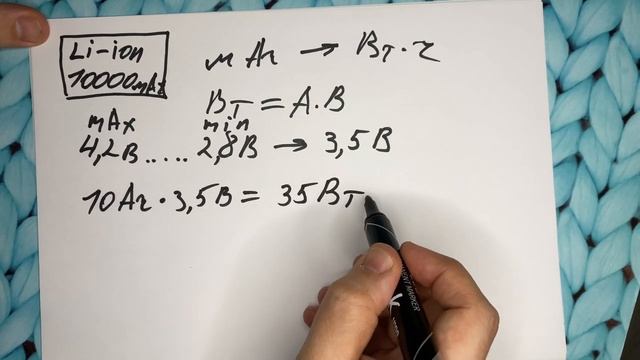 Li-ion
10000мАч
мАч → Вт·ч
Вт = А·В
max min
4,2В.....2,8В → 3,5В
10Ач·3,5В = 35Вт
MARKER